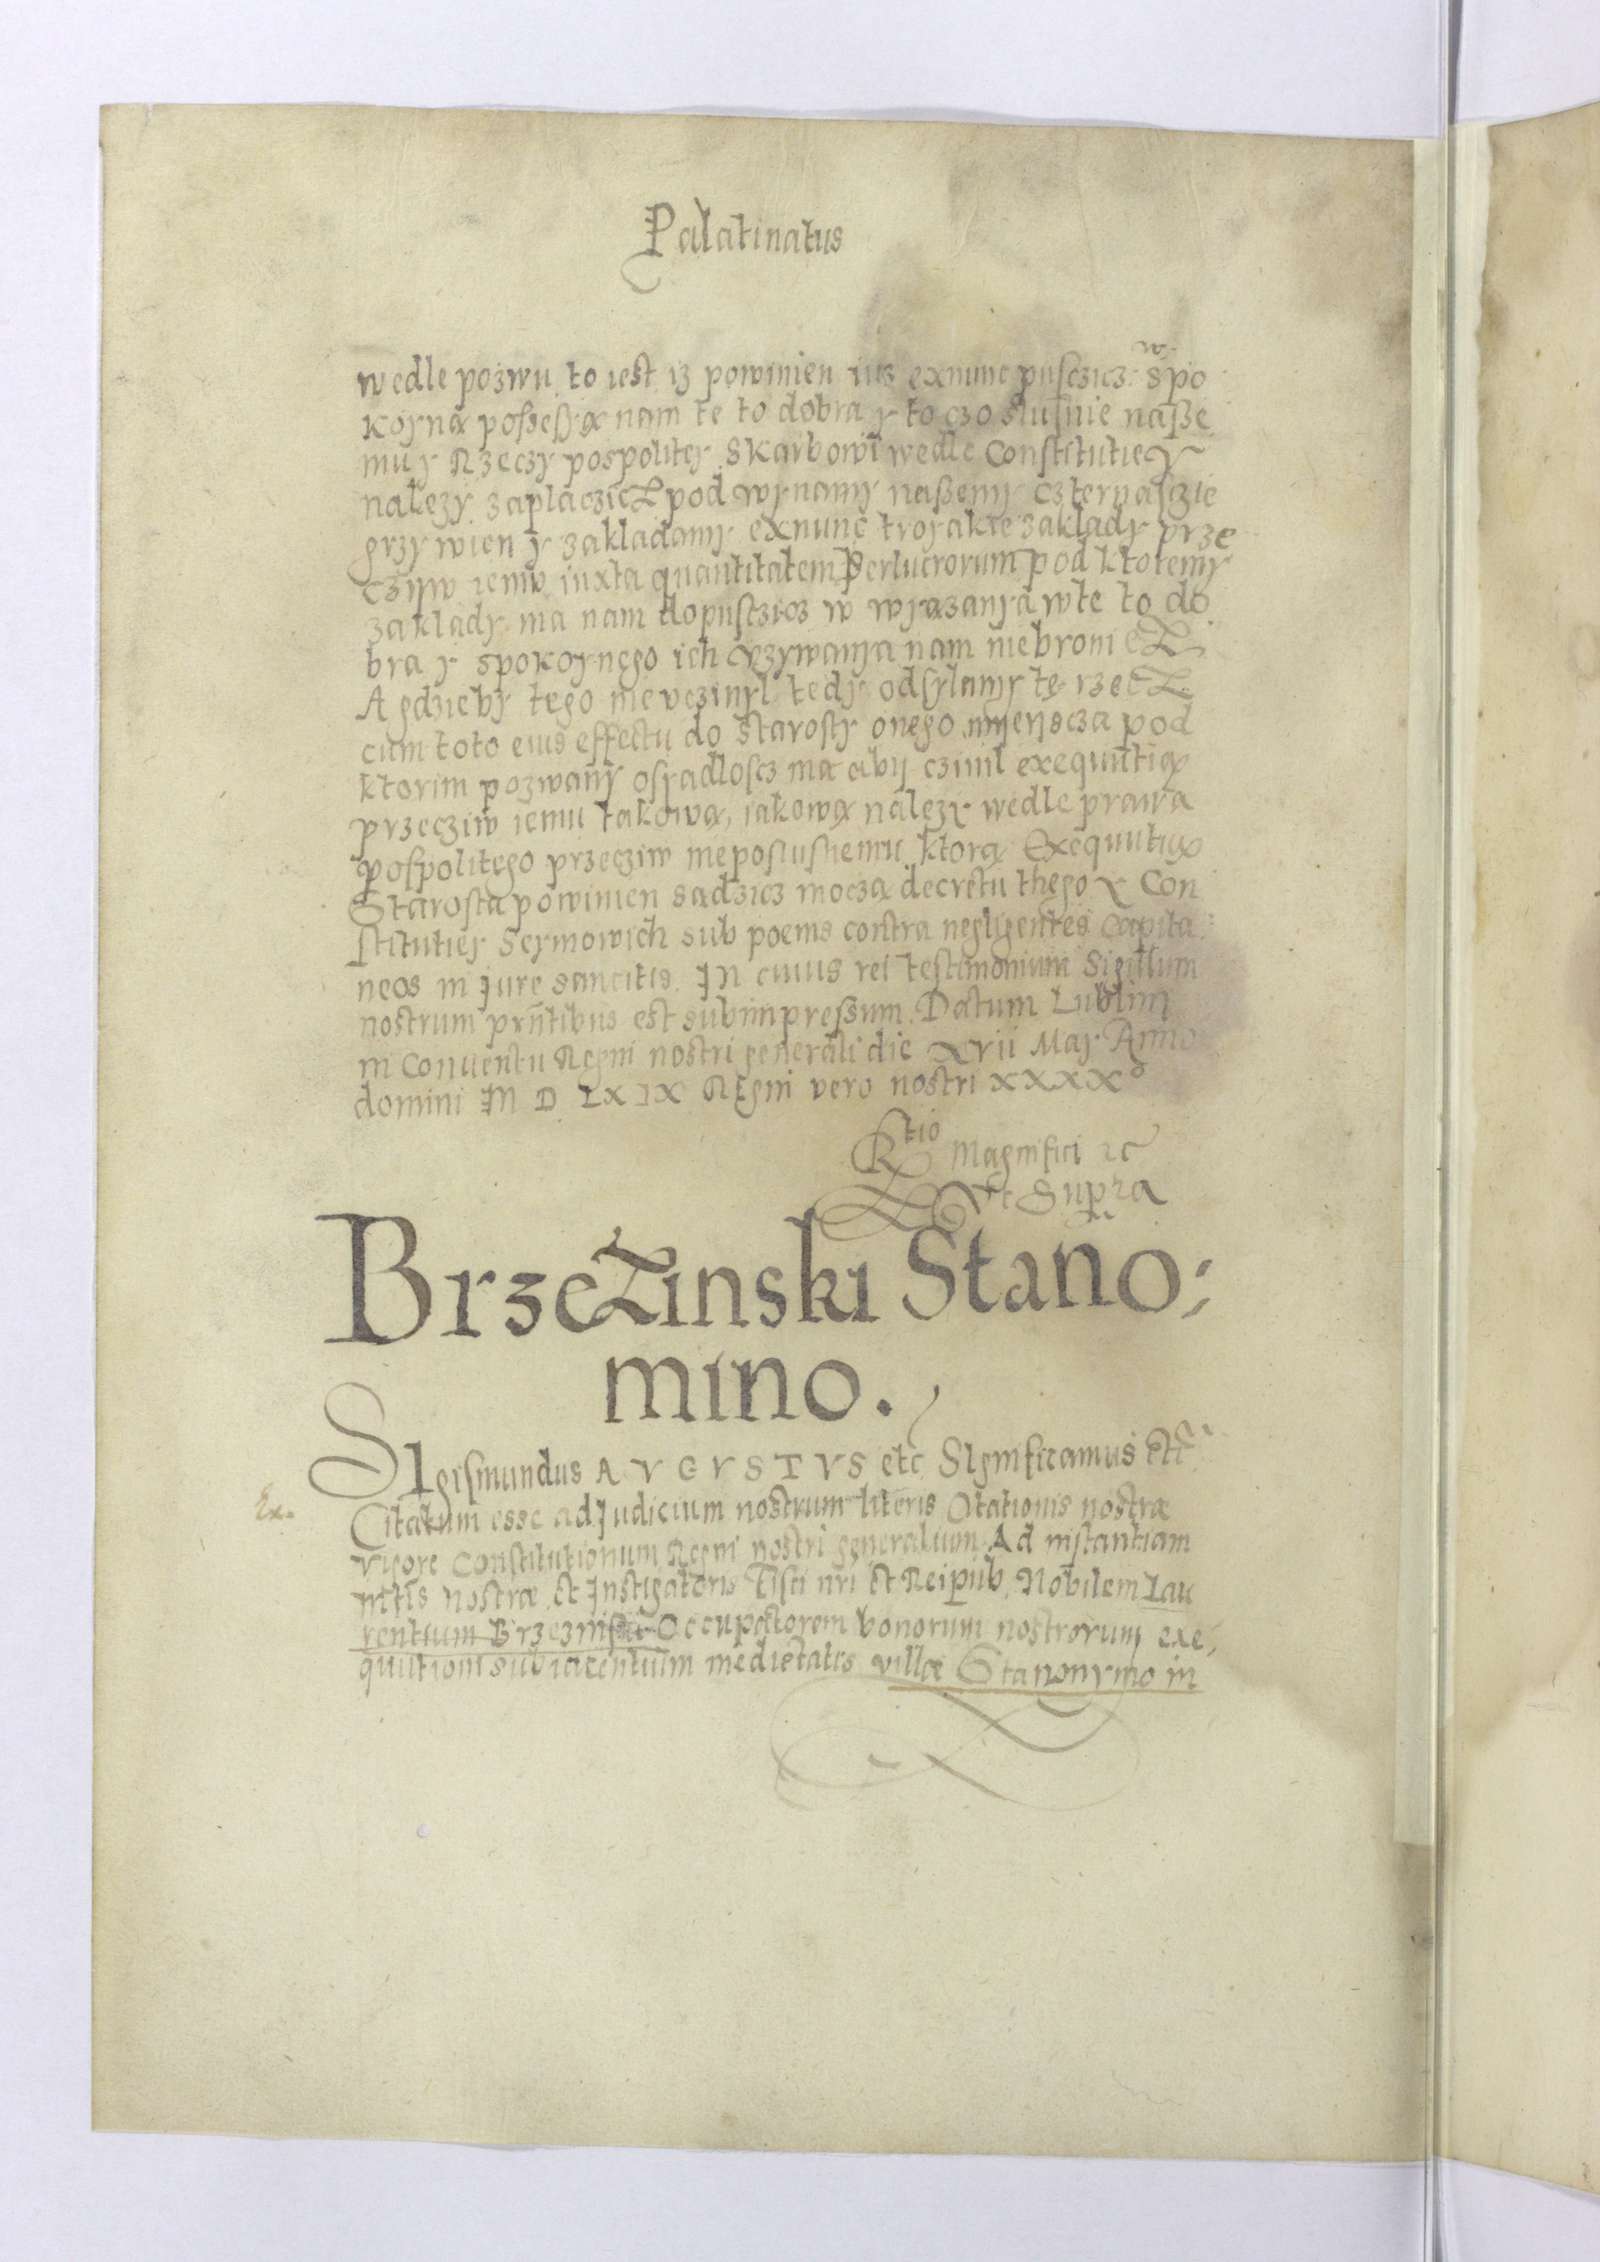 Palatinatus
w
wedle pozwu to iest iz powinien iuz exnunc pusczicz spo
koyną possessyą nam te to dobra y to czo slusnie nasze
mu y Rzeczy pospolitey skarbowi wedle Constitutiey
nalezy zaplaczicz pod wynamy naszemy czternasczie
grzywien y zakladamy exnunc troyakie zaklady prze
cziw iemu iuxta quantitatem Perlucrorum pod ktotemy
zaklady ma nam dopusczicz w wyązanya w te to do
bra y spokoynego ich vzywanya nam niebronicz
A gdzieby tego nie vczinyl tedy odsylamy tę rzecz
cum toto eius effectu do starosty onego myeyscza pod
ktorim pozwany osyadloscz ma aby czinil exequutią
przecziw iemu takową, iakową nalezy wedle prawa
pospolitego przecziw nieposlusnemu ktorą Exequutią
Starosta powinien sądzicz moczą decretu thego y Con
stitutiey Seymowich sub poenis contra negligentes Capita
neos in Jure sancitis. In cuius rei testimonium Sigillum
nostrum prñtibus est subimpressum. Datum Lublini
in Conuentu Regni nostri generali die xvii May Anno
domini M D LX IX REgni vero nostri xxxx°
Rtio Magnifici etc
Vt Supra
Brzezinski Stano:
mino.
SIgismundus AVGVSTVS etc SIgnificamus etc
Ex.
Citatum esse ad Judicium nostrum literis Citationis nostræ
vigore Constitutionum Regni nostri generalium Ad instantiam
mtis nostræ et Instigatoris Fisci nri et Reipub. Nobilem Lau
rentium Brzezinski Occupatorem bonorum nostrorum exe,
quutioni subiacentium medietatis villæ Stanonymo in